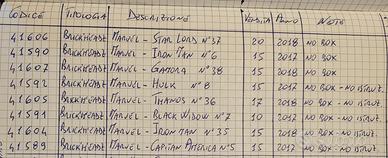 CODICE TIPOLOGIA DESCRIZIONE VENDITA ANNO NOTE
41606 BRICKHEADZ MARVEL - STAR LORD N°37 20 2018 NO BOX
41590 BRICKHEADZ MARVEL - IRON MAN N°6 15 2017 NO BOX
41607 BRICKHEADZ MARVEL - GAMORA N°38 15 2018 NO BOX
41592 BRICKHEADZ MARVEL - HULK N°8 15 2017 NO BOX - NO ISTRUZ.
41605 BRICKHEADZ MARVEL - THANOS N°36 17 2018 NO BOX - NO ISTRUZ.
41591 BRICKHEADZ MARVEL - BLACK WIDOW N°7 10 2017 NO BOX - NO ISTRUZ.
41604 BRICKHEADZ MARVEL - IRON MAN N°35 15 2018 NO BOX - NO ISTRUZ.
41589 BRICKHEADZ MARVEL - CAPITAN AMERICA N°5 15 2017 NO BOX - NO ISTRUZ.